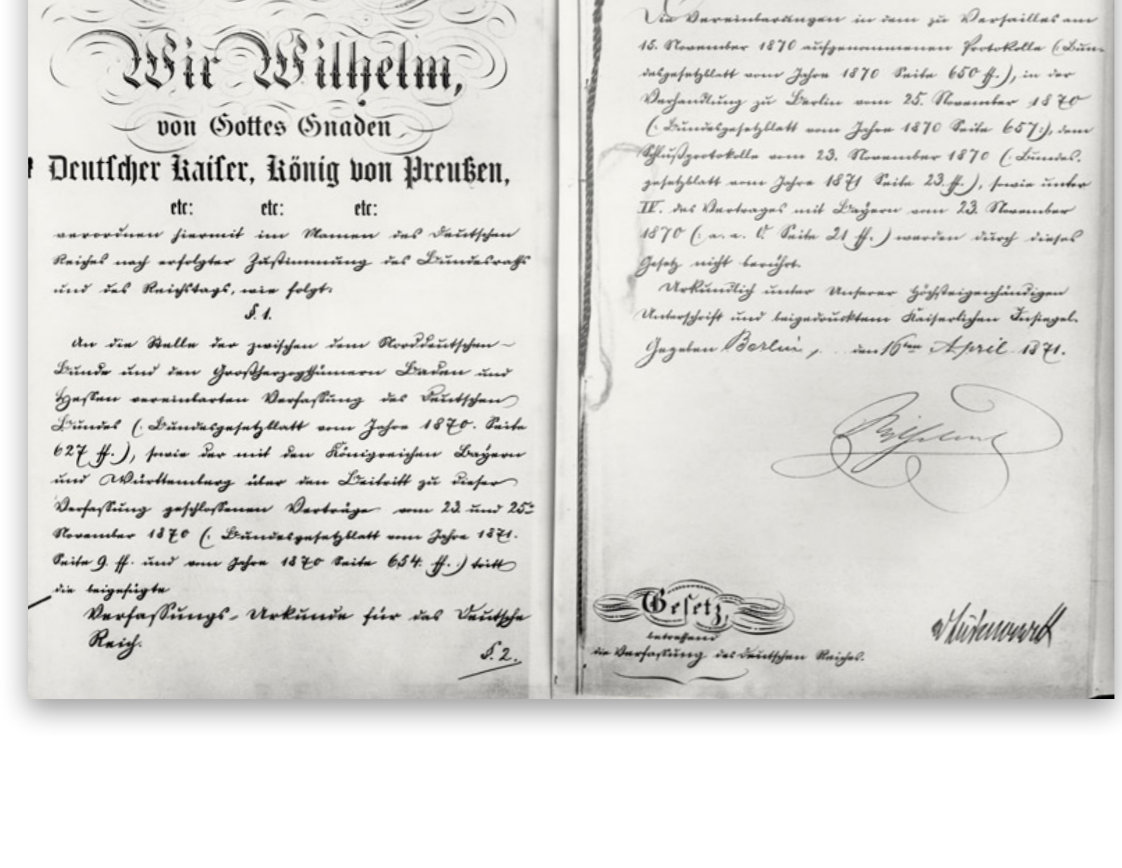 Wir Wilhelm,
von Gottes Gnaden
Deutscher Kaiser, König von Preußen,
etc: etc: etc:
verordnen hiermit im Namen des Deutschen
Reiches nach erfolgter Zustimmung des Bundesraths
und des Reichstags, wie folgt:
§. 1.
An die Stelle der zwischen dem Norddeutschen
Bunde und den Großherzogthümern Baden und
Hessen vereinbarten Verfassung des Deutschen
Bundes (: Bundesgesetzblatt vom Jahre 1870. Seite
627 ff.), sowie der mit den Königreichen Bayern
und Württemberg über den Beitritt zu dieser
Verfassung geschlossenen Verträge vom 23. und 25.
November 1870 (: Bundesgesetzblatt vom Jahre 1871.
Seite 9. ff. und vom Jahre 1870 Seite 654. ff.:) tritt
die beigefügte
Verfassungs-Urkunde für das Deutsche
Reich.
§. 2.
Die Vereinbarungen in dem zu Versailles am
15. November 1870 aufgenommenen Protokolle (: Bun-
desgesetzblatt vom Jahre 1870 Seite 650 ff.), in der
Verhandlung zu Berlin vom 25. November 1870
(: Bundesgesetzblatt vom Jahre 1870 Seite 657:), dem
Schlußprotokolle vom 23. November 1870 (: Bundes-
gesetzblatt vom Jahre 1871 Seite 23. ff.), sowie unter
IV. des Vertrages mit Bayern vom 23. November
1870 (: a. a. O. Seite 21 ff.:) werden durch dieses
Gesetz nicht berührt.
Urkundlich unter Unserer Höchsteigenhändigen
Unterschrift und beigedrucktem Kaiserlichen Insiegel.
Gegeben Berlin, den 16ten April 1871.
Wilhelm
Gesetz,
betreffend
die Verfassung des Deutschen Reiches.